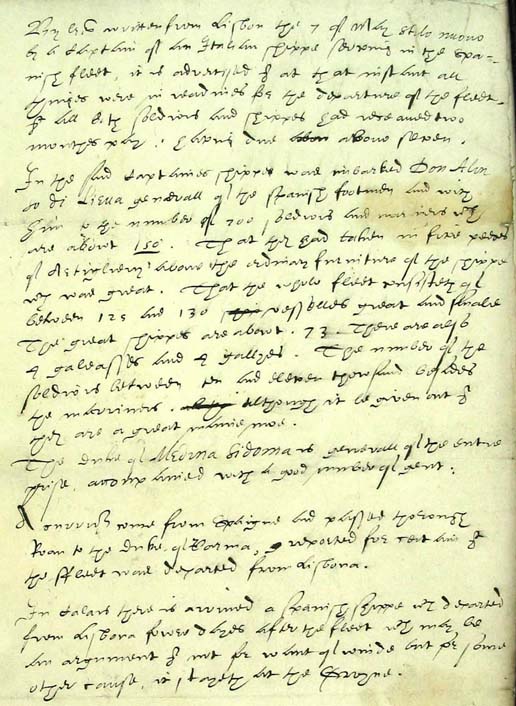 By lres written from Lisbon the 7 of May stilo nuovo
by a Captain of an Italian shippe serving in the Spa-
nish fleet, it is advertised yt at that instant all
thinges were in readines for the departure of the fleet.
yt all the soldiors and shippes had receaved two
monthes pay. having due above seven.
In the said Captaines shippe was imbarked Don Alon
so di Lieva generall of the Spanish footmen and with
him to the number of 700 soldiors and mariners wch
are about 150. That they had taken in five peeces
of Artiglierij above the ordinary furniture of the shippe
wch was great. That the whole fleet consisteth of
between 125 and 130 vesselles great and smale
The great shippes are about .73. There are also
4 galeasses and 4 gallyes. The number of the
soldiors between ten and eleven thowsand besides
the marriners. although it be given out yt
they are a great manie moe.
The Duke of Medina Sidonia is generall of the entre
prise, accompanied with a good number of gent:
A currier come from Spaigne and passed thorough
Roan to the Duke of Parma, reported for certain yt
the ffleet was departed from Lisbona.
In Calais there is arrived a Spanish shippe wch departed
from Lisbona fower dayes after the fleet wch may be
an argument yt not for want of winde but for some
other cause, it stayeth at the Groyne.